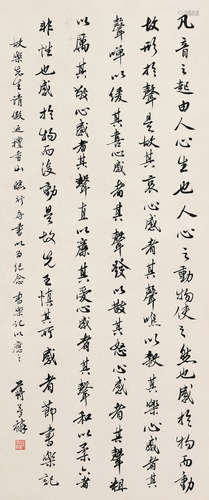 凡音之起由人心生也人心之動物使之然也感於物而動
故形於聲是故其哀心感者其聲噍以殺其樂心感者其
聲嘽以緩其喜心感者其聲發以散其怒心感者其聲粗
以厲其敬心感者其聲直以廉其愛心感者其聲和以柔六者
非性也感於物而後動是故先王慎其所感者節書樂記
樂先生山臨行書以為紀念書樂記以應之
蔣